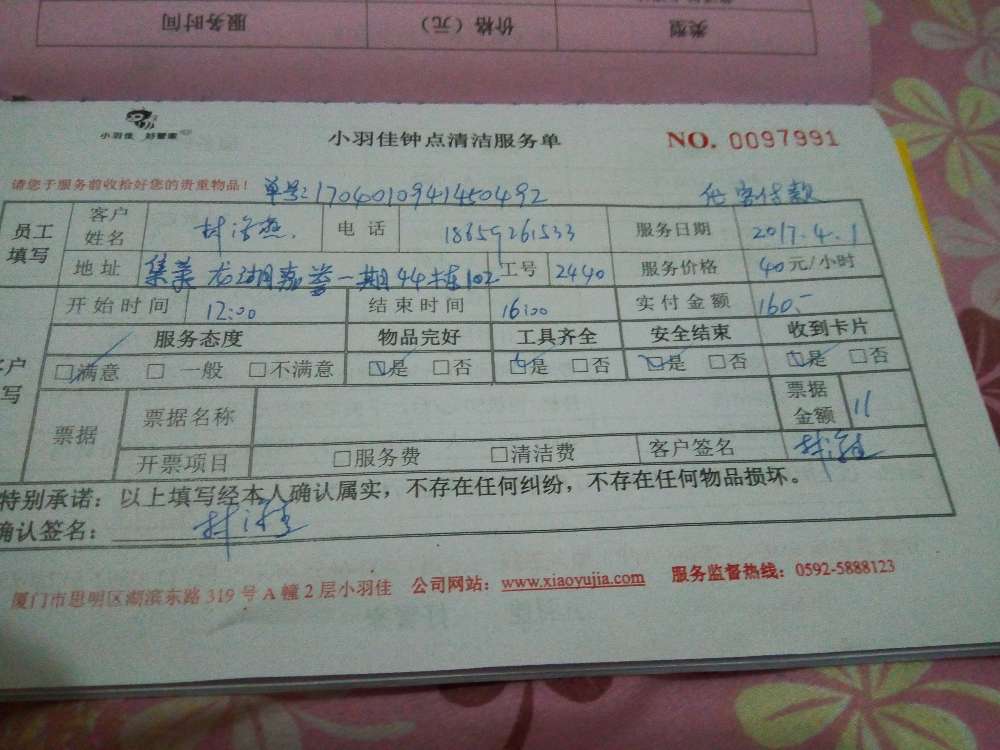 服务时间 价格（元） 类型
小羽佳 好管家
小羽佳钟点清洁服务单 NO. 0097991
请您于服务前收拾好您的贵重物品！ 单号:1704010941450492 客付款
员工填写 客户姓名 林 电话 18659261533 服务日期 2017.4.1
地址 集美龙湖嘉誉一期44栋102 工号 2440 服务价格 40元/小时
开始时间 12:00 结束时间 16:00 实付金额 160.-
户写 服务态度 物品完好 工具齐全 安全结束 收到卡片
☑满意 □一般 □不满意 ☑是 □否 ☑是 □否 ☑是 □否 ☑是 □否
票据 票据名称 票据金额 11
开票项目 □服务费 □清洁费 客户签名 林
特别承诺：以上填写经本人确认属实，不存在任何纠纷，不存在任何物品损坏。
确认签名： 林
厦门市思明区湖滨东路319号A幢2层小羽佳 公司网站：www.xiaoyujia.com 服务监督热线：0592-5888123